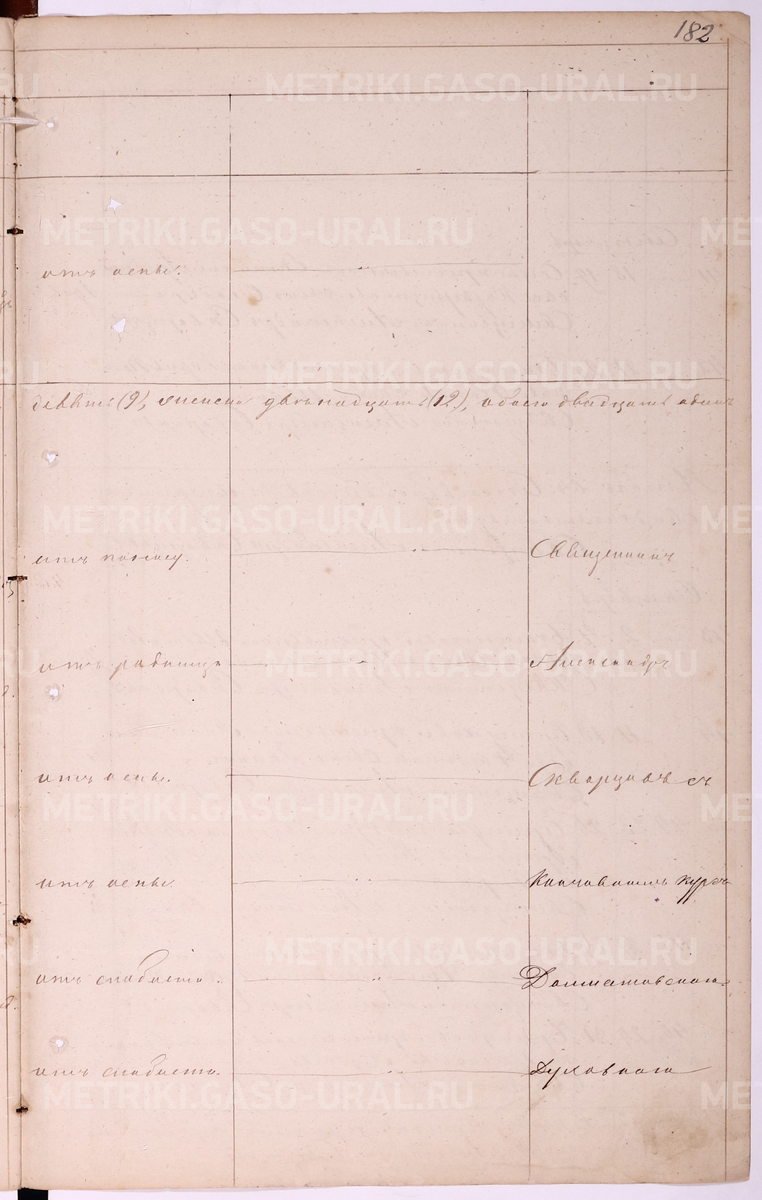 182
METRIKI.GASO-URAL.RU
METRIKI.GASO-URAL.RU
отъ оспы.
METRIKI.GASO-URAL.RU
девять (9), женска двѣнадцать (12), обоего двадцать одинъ
METRIKI.GASO-URAL.RU
отъ поносу. Священникъ
METRIKI.GASO-URAL.RU
отъ родимца Александръ
отъ оспы. Скворцовъ съ
METRIKI.GASO-URAL.RU
отъ оспы. кончившимъ курсъ
METRIKI.GASO-URAL.RU
отъ слабости. Долматовскаго
отъ слабости. Духовнаго
METRIKI.GASO-URAL.RU